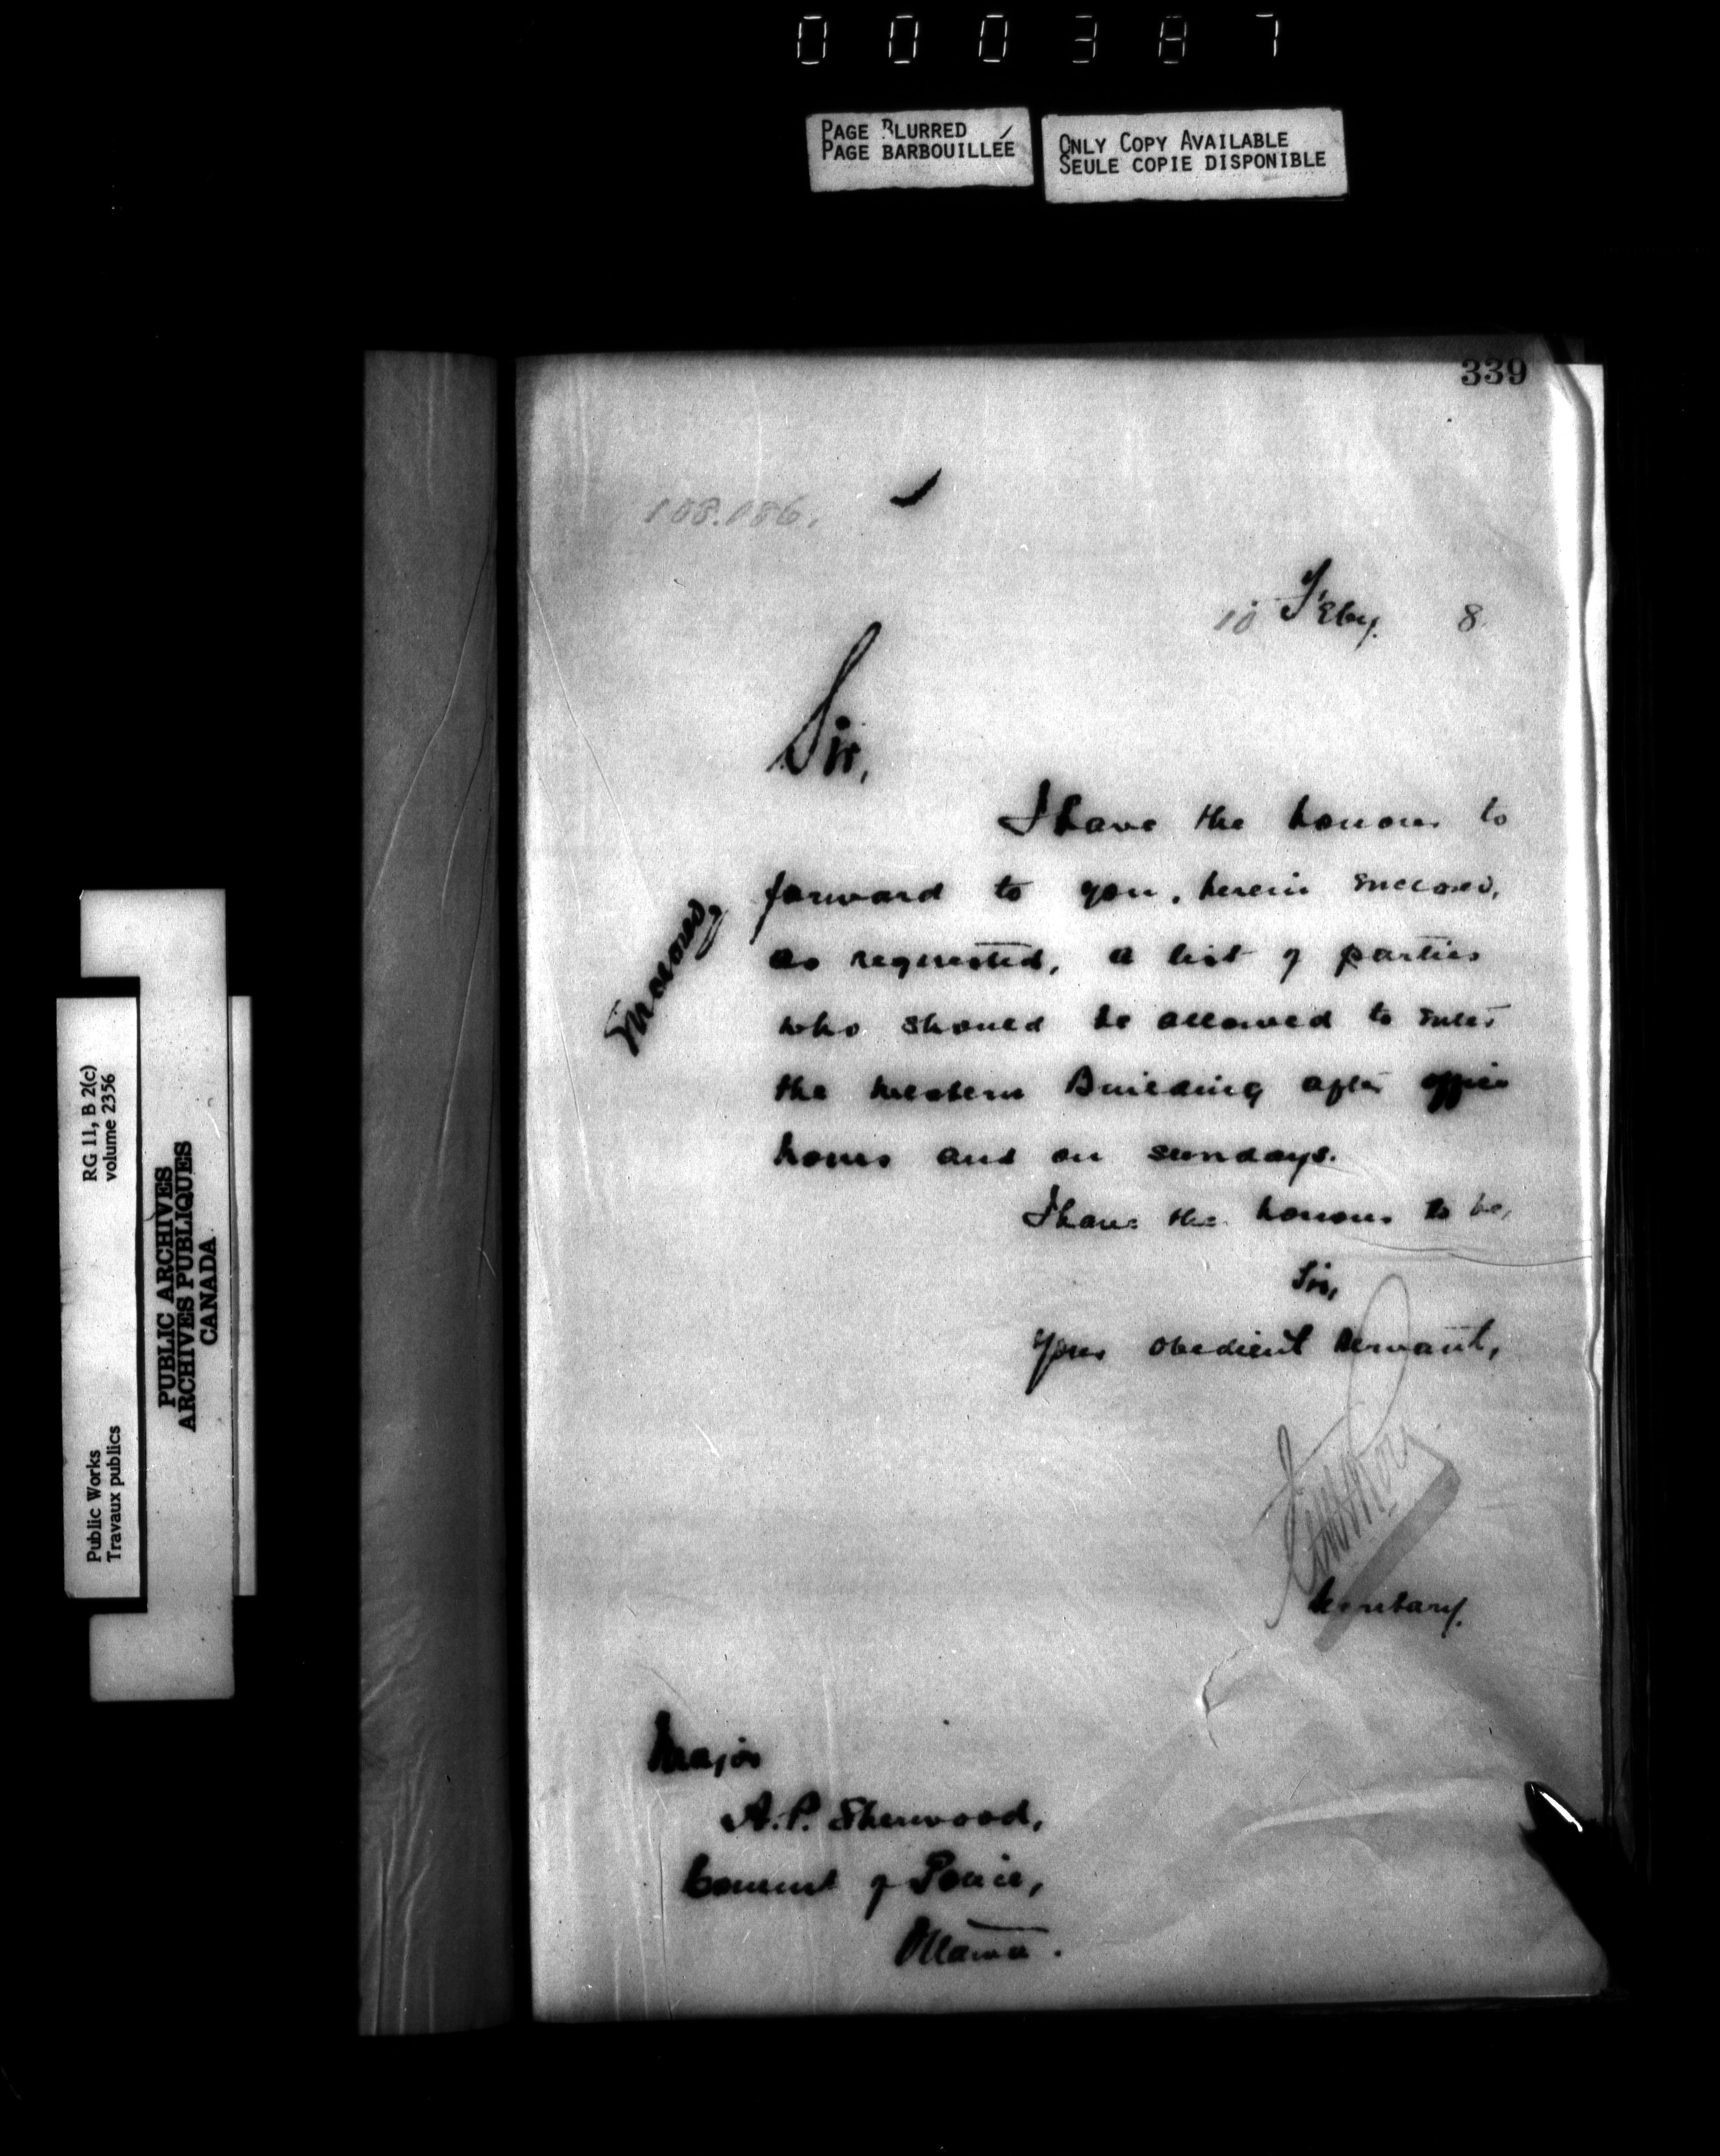 000387
PAGE BLURRED
PAGE BARBOUILLÉE
ONLY COPY AVAILABLE
SEULE COPIE DISPONIBLE
339
108.186.
10 Feby. 8
Sir,
I have the honour to
forward to you, herein enclosed,
as requested, a list of parties
who should be allowed to enter
the western Building after office
hours and on sundays.
I have the honour to be,
Sir,
Your obedient servant,
Secretary.
Enclosed,
Major
A. P. Sherwood,
Commt of Police,
Ottawa.
RG 11, B 2(c)
volume 2356
Public Works
Travaux publics
PUBLIC ARCHIVES
ARCHIVES PUBLIQUES
CANADA